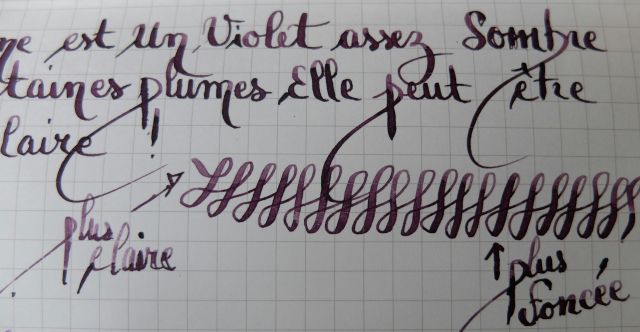 ne est un Violet assez Sombre
taines plumes Elle peut être
laire !
plus
claire
plus
foncée